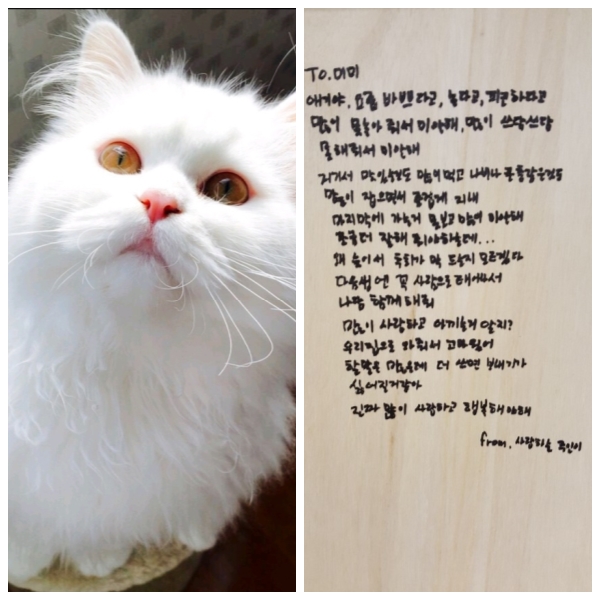 To.미미
애기야, 요즘 바쁘다고, 놀다고, 피곤하다고
많이 못놀아 줘서 미안해, 많이 쓰담쓰담
못해줘서 미안해
거기서 맛있는것도 많이먹고 나비나 곤충같은것도
많이 잡으면서 즐겁게 지내
마지막에 가는거 못보고 많이 미안해
조금더 잘해 줘야하는데...
왜 눈이서 독화가 막 드는지 모르겠다
다음번엔 꼭 사람으로 태어나서
나랑 함께해줘
많이 사랑하고 아끼는거 알지?
우리집으로 와줘서 고마웠어
할말은 많은데 더 쓰면 보내기가
싫어질거같아
진짜 많이 사랑하고 행복해야해
from. 사랑하는 주인이